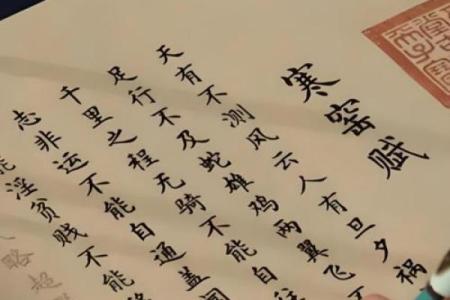 寒窑赋
天有不测风云人有旦夕祸
足行不及蛇雄鸡两翼飞不
千里之程无骑不能自往
志非运不能自通盖闻
能淫贫贱不能
略超